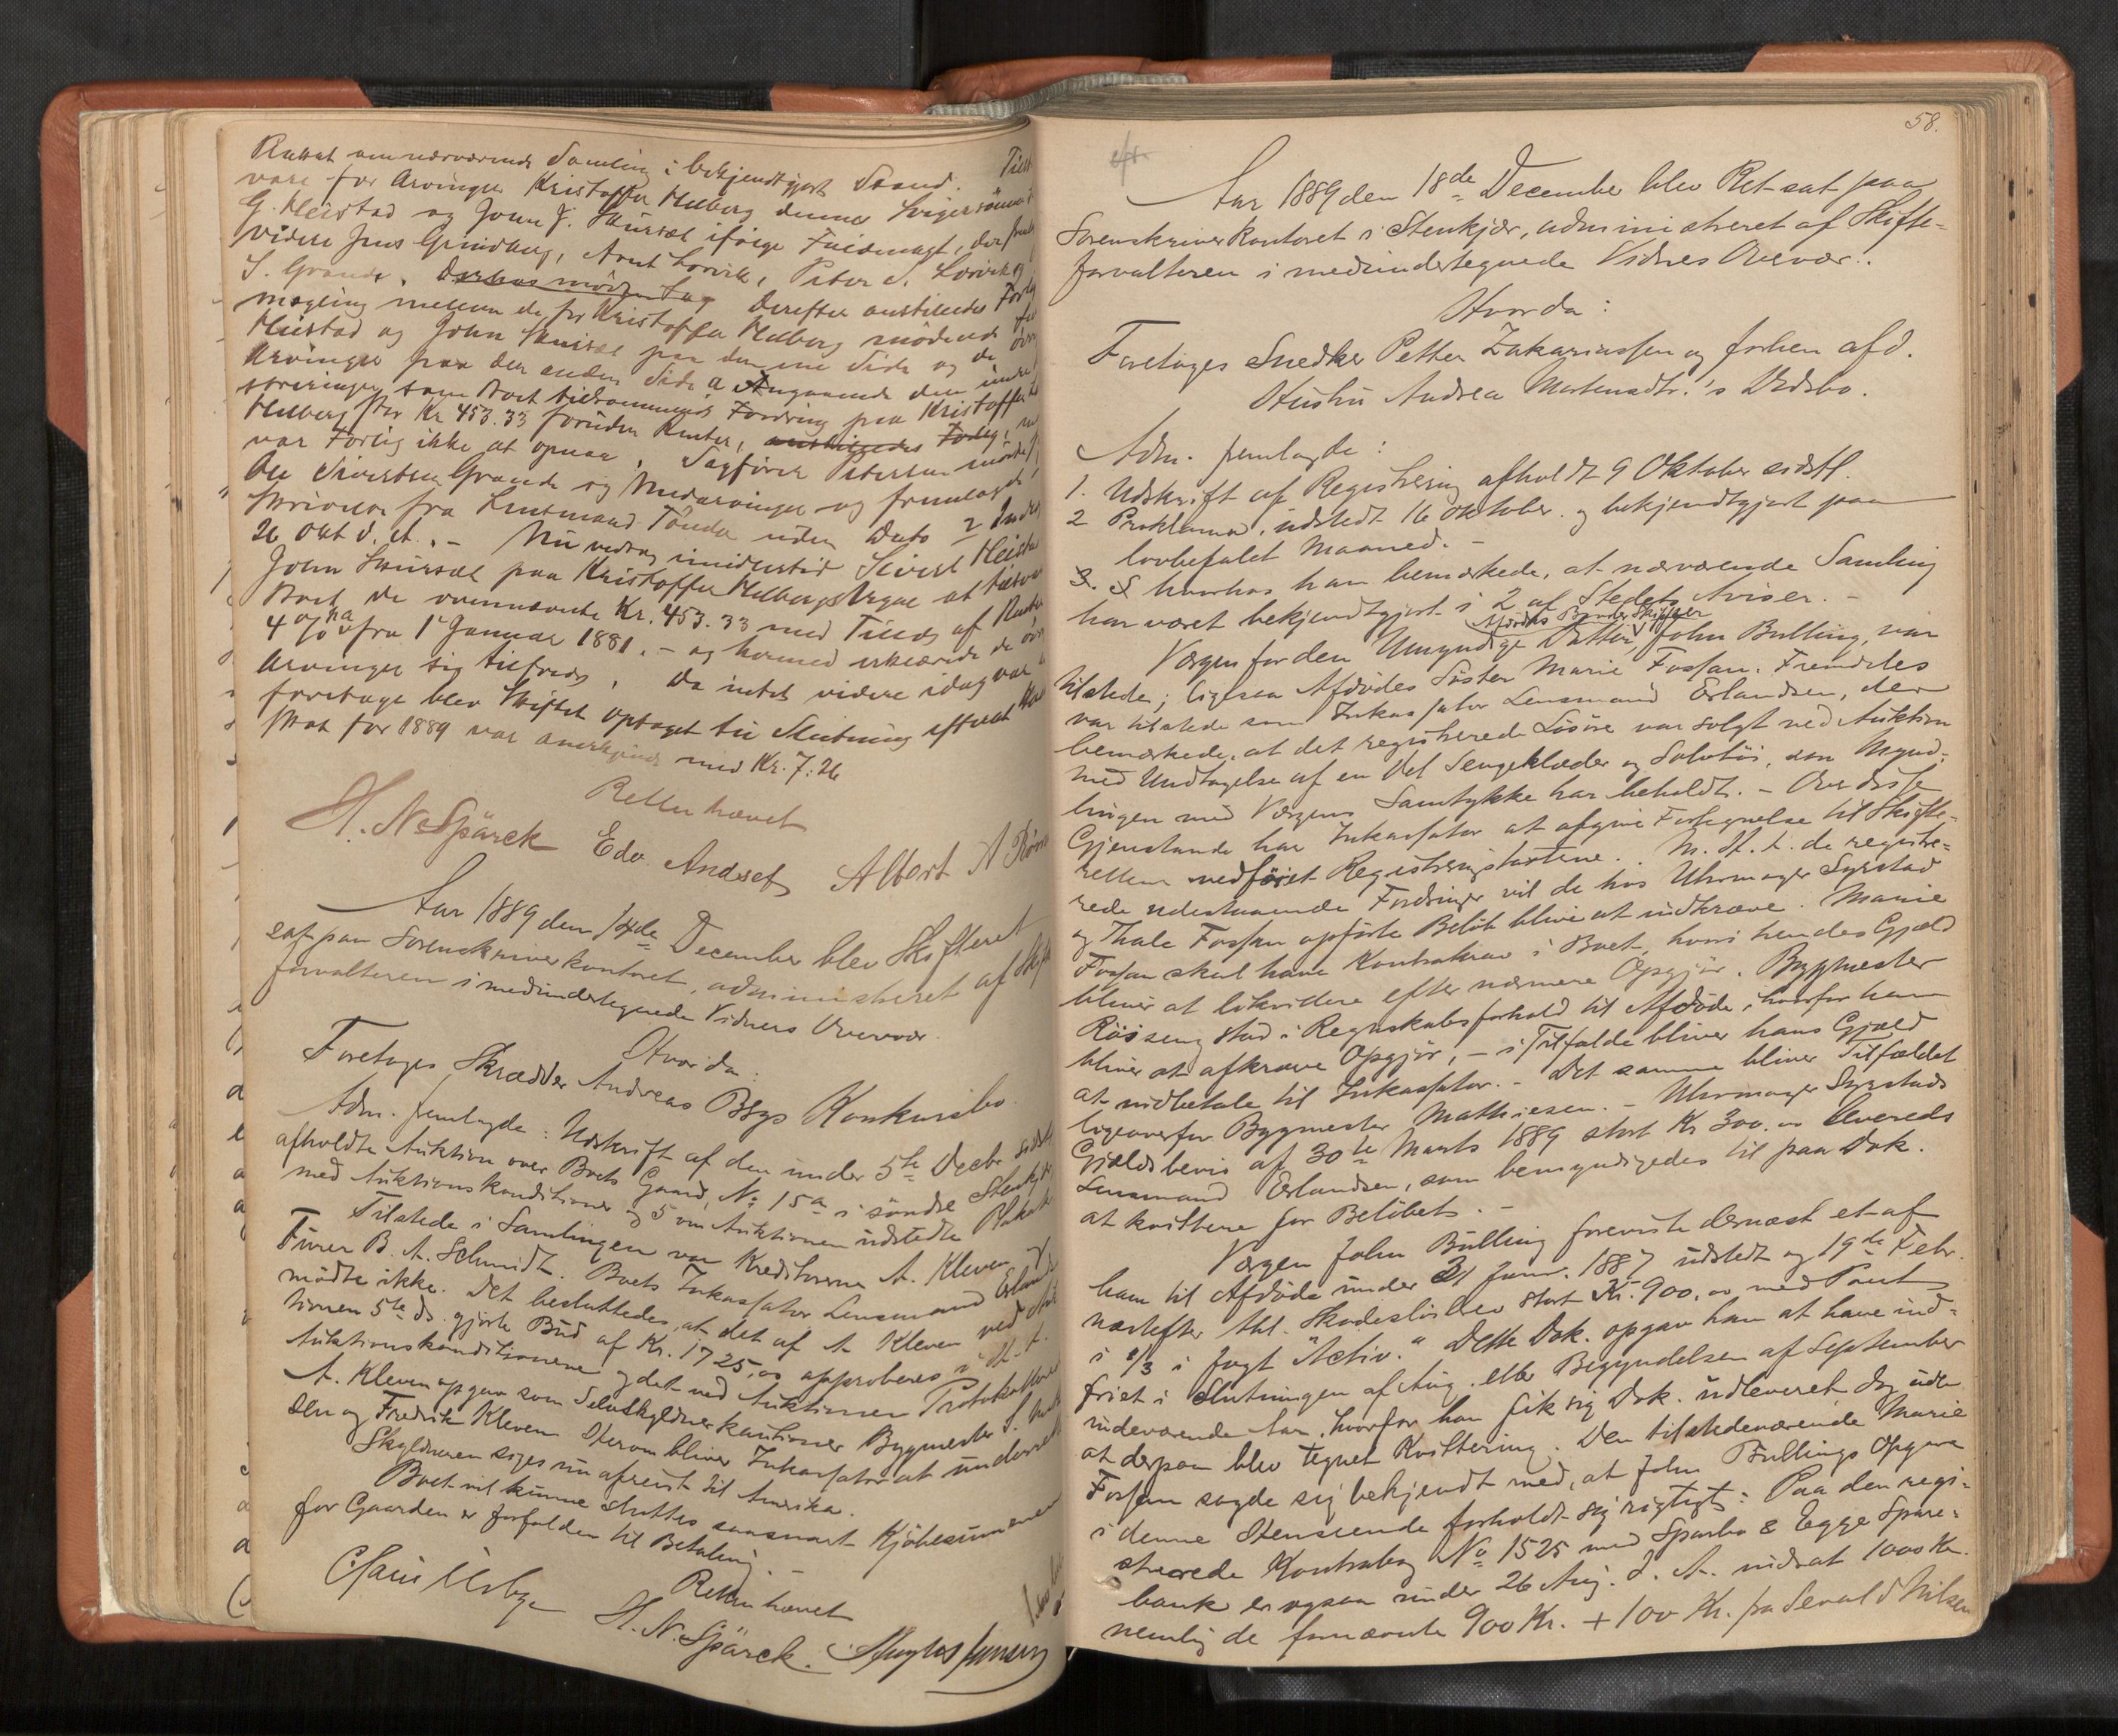 Rettet om nærværende Samling i bekjendtgjort Stand. Tilst
vare for Arvingen Kristoffer Helberg dennes Svigersønner
G. Heistad og John J. Skursæl ifølge Fuldmagt, der
videre Jens Grindberg, Arnt Lorvik, Peter S. Lorvik og
S. Grande. Derhos mødte Sag Derefter anstilledes Forlig
mægling mellem de for Kristoffer Helberg mødende
Heistad og John Skursæl paa den ene Side og de øvr
Arvinger paa den anden Side a Angaaende den
som Boet tilkommende Fordring paa Kristoffer
Helberg stor Kr 453.33 foruden Renter, anstilledes Forlig,
var Forlig ikke at opnaa. Sagfører Petersen mødte
Ole Sivertsen Grande og Medarvinger og fremlagde
Skrivelse fra Lensmand Tønder uden Dato
26 Okt d. A. - Nu vedtog imidlertid Sivert Heista
John Skursæl paa Kristoffer Helbergs Vegne at tilsva
Boet de ovennævnte Kr. 453.33 med Tillæg af Renter
4 % fra 1 Januar 1881. - og hermed erklærede de øvr
Arvinger sig tilfreds. Da intet videre idag var
foretage blev Skiftet optaget til Slutning efterat
skat for 1889 var anerkjendt med Kr. 7.26
Retten hævet
H. N. Spärck Edv. Andsef Albert A
Aar 1889 den 14de December blev Skifteret
sat paa Sorenskriverkontoret, administreret af Skifte
forvalteren i medundertegnede Vidners Overvær.
Hvorda:
Foretages Skrædder Andreas Bbys Konkursbo.
Adm. fremlagde: Udskrift af den under 5te Decbr sidstl
afholdte Auktion over Boets Gaard, No 15a i søndre Stenkjær
med Auktionskonditioner og 5 om Auktionen udstedte Plakater
Tilstede i Samlingen var Kreditorerne A. Kleven
Furer B. A. Schmidt. Boets Inkassator Lensmand Erlands
mødte ikke. Det besluttedes, at det af A. Kleven ved Auk
tionen 5te ds. gjorte Bud af Kr. 1725,00 approberes i H. t.
Auktionskonditionerne og det ved Auktionen Protokollerede
A. Kleven opgav som Selvskyldnerkautioner Bygmester S.
sen og Fredrik Kleven. Herom bliver Inkassator at underrette
Skyldneren siges nu afreist til Amerika.
Boet vil kunne sluttes saasnart Kjøbesummen
for Gaarden er forfalden til Betaling
Retten hævet
H. N. Spärck.
58.
Aar 1889 den 18de December blev Ret sat paa
Sorenskriverkontoret i Stenkjær, administreret af Skifte-
forvalteren i medundertegnede Vidners Overvær.
Hvorda:
Foretages Snedker Petter Zakariassen og forhen afd.
Hustru Andrea Mortensdtr.'s Dødsbo.
Adm. fremlagde:
1. Udskrift af Registrering afholdt 9 Oktober sidstl.
2 Proklama, udstedt 16 Oktober og bekjendtgjort paa
lovbefalet Maaned. -
3. S hvorhos han bemærkede, at nærværende Samling
har været bekjendtgjort i 2 af Stedets Aviser. -
Afdødes Broder Skipper
Værgen for den Umyndige Datter, John Bulling, var
tilstede; ligesaa Afdødes Søster Marie Fossan. Fremdeles
var tilstede som Inkassator Lensmand Erlandsen, der
bemærkede, at det registrerede Løsøre var solgt ved Auktion
med Undtagelse af en Del Sengeklæder og Sølvtøi, som Mynd-
lingen med Værgens Samtykke har beholdt. - Over disse
Gjenstande har Inkassator at afgive Fortegnelse til Skifte-
retten vedføiet Registreringstaxtene. M. H. t. de registre-
rede udestaaende Fordringer vil de hos Uhrmager Syrstad
og Thale Fossan opførte Beløb blive at indkræve. Marie
Fossan skal have Kontrakrav i Boet, hvori hendes Gjæld
bliver at likvidere efter nærmere Opgjør. Bygmester
Røiseng stod i Regnskabsforhold til Afdøde, hvorfor ham
bliver at afkræve Opgjør, - i Tilfælde bliver hans Gjæld
at indbetale til Inkassator. - Det samme bliver Tilfældet
ligeoverfor Bygmester Mathiesen. - Uhrmager Syrstads
Gjældsbevis af 30te Marts 1889 stort Kr 300.00 leveredes
Lensmand Erlandsen, som bemyndigedes til paa Dok.
at kvittere for Beløbet. -
Værgen John Bulling foreviste dernæst et af
ham til Afdøde under 31 Janr. 1887 udstedt og 19de Febr.
næstefter thl. Skadesløsbrev stort Kr. 900,00 med Pant
i 1/3 i Jagt "Activ." Dette Dok. opgav han at have ind-
friet i Slutningen af Aug. eller Begyndelsen af September
indeværende Aar, hvorfor han fik sig Dok. udleveret dog uden
at derpaa blev tegnet Kvittering. Den tilstedeværende Marie
Fossan sagde sig bekjendt med, at John Bullings Opgave
i denne Henseende forholdt sig rigtigt: Paa den regi-
strerede Kontrabog No 1525 med Sparbu & Egge Spare-
bank er ogsaa under 26 Aug. d. A. indsat 1000 Kr.
nemlig de fornævnte 900 Kr. + 100 Kr. fra Sevald Nilsen